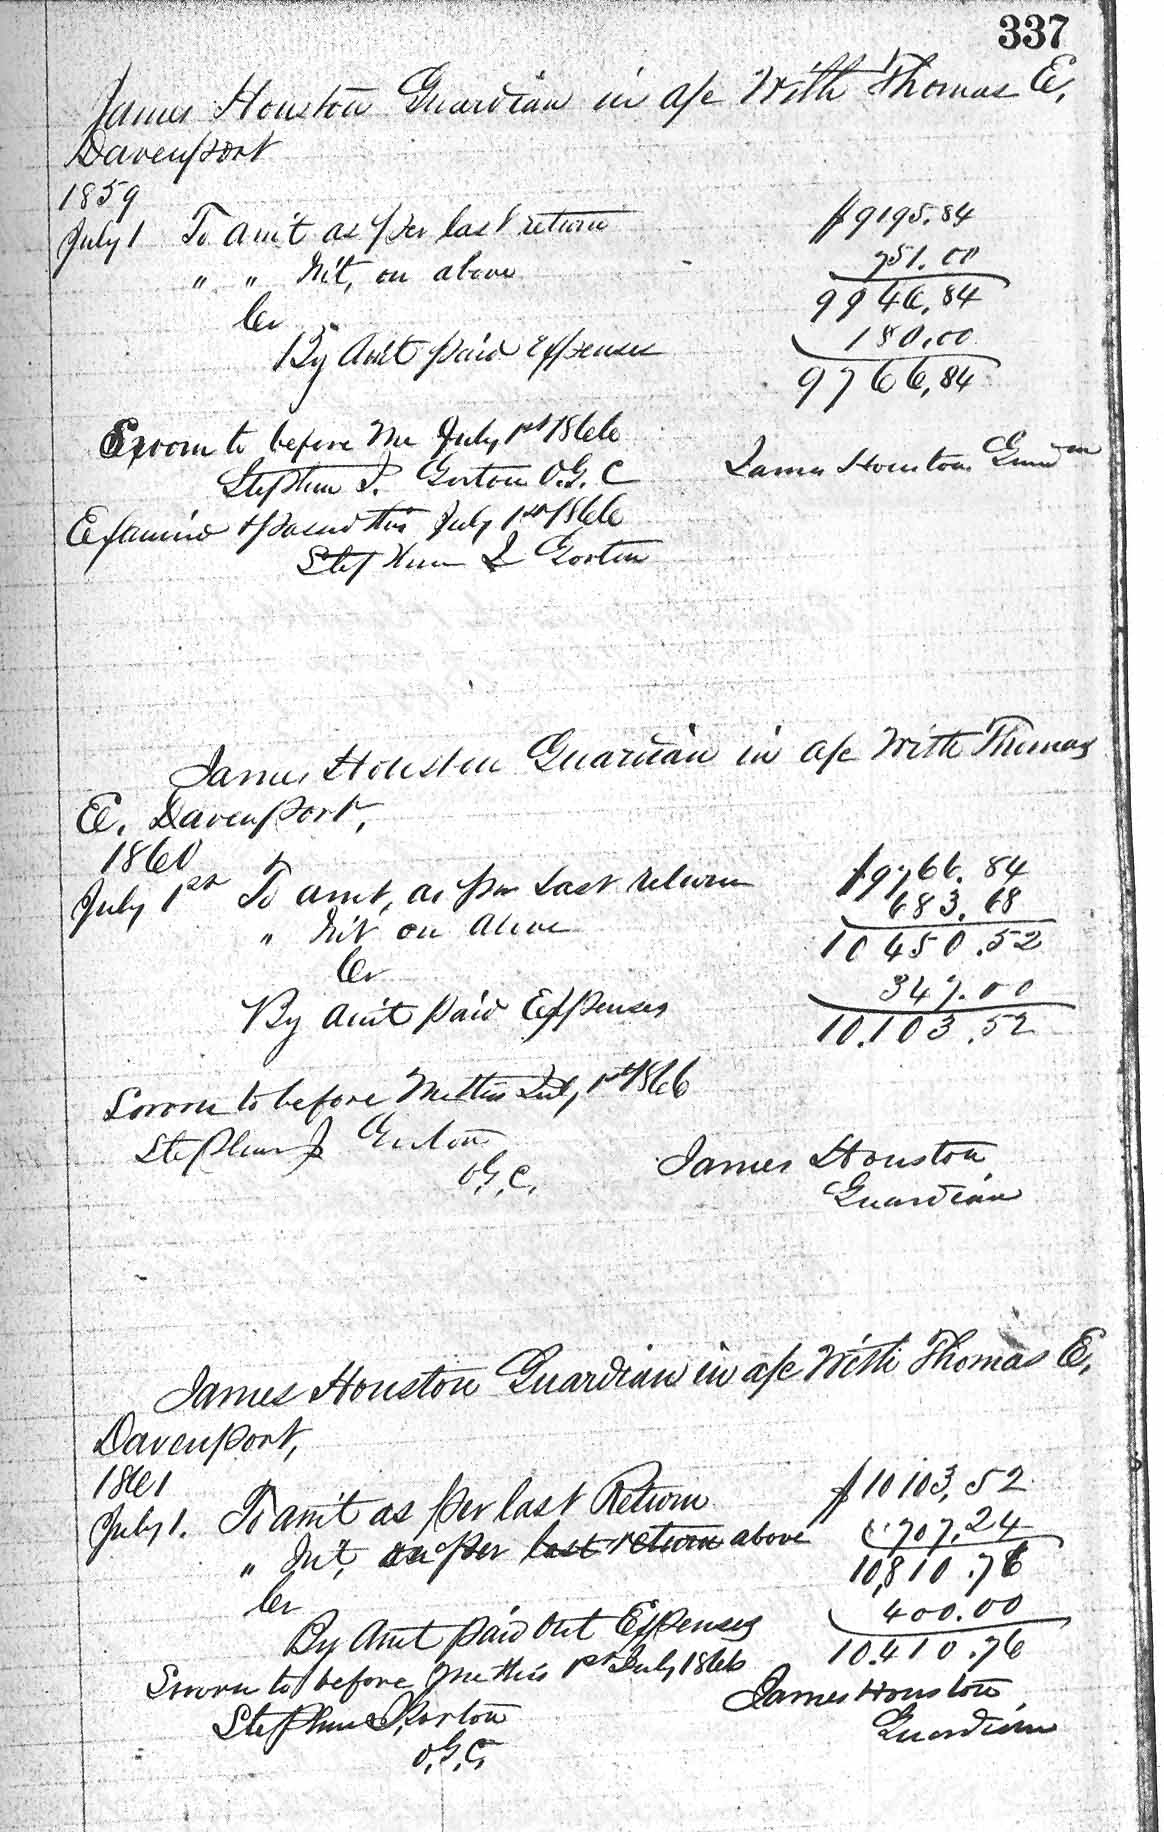 337
James Houston Guardian in a/c With Thomas E.
Davenport
1859
July 1 To am't as per last return $9195.84
" " Int, on above 751.00
9946.84
Cr
By Am't paid Expenses 180.00
9766.84
Sworn to before Me July 1st 1866
Stephen J. Gorton O.G.C James Houston Guardn
Examined & passed this July 1st 1866
Stephen J Gorton
James Houston Guardian in a/c With Thomas
E. Davenport,
1860
July 1st To amt, as per Last return $9766.84
" Int on above 683.68
10450.52
Cr
By Am't paid Expenses 347.00
10.103.52
Sworn to before Me this July 1st 1866
Stephen J Gorton
O.G.C. James Houston
Guardian
James Houston Guardian in a/c With Thomas E.
Davenport,
1861
July 1. To am't as per last Return $10103,52
" Int, on per last return above 707.24
10,810.76
Cr 400.00
By Amt paid Out Expenses 10.410.76
Sworn to before Me this 1st July 1866
Stephen J Gorton James Houston
O.G.C. Guardian